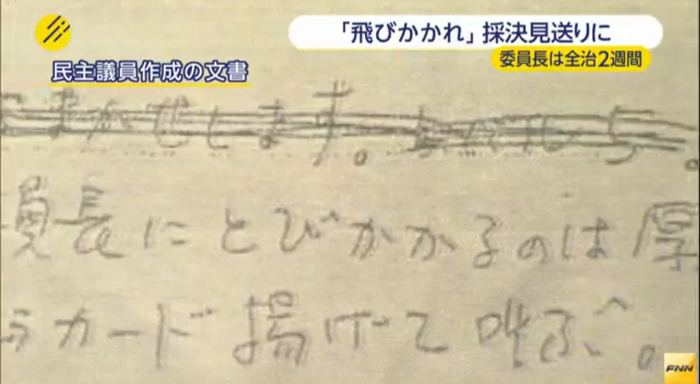 「飛びかかれ」採決見送りに
委員長は全治2週間
民主議員作成の文書
します。
員長にとびかかるのは厚
らカード揚げて叫ぶ。
FNN